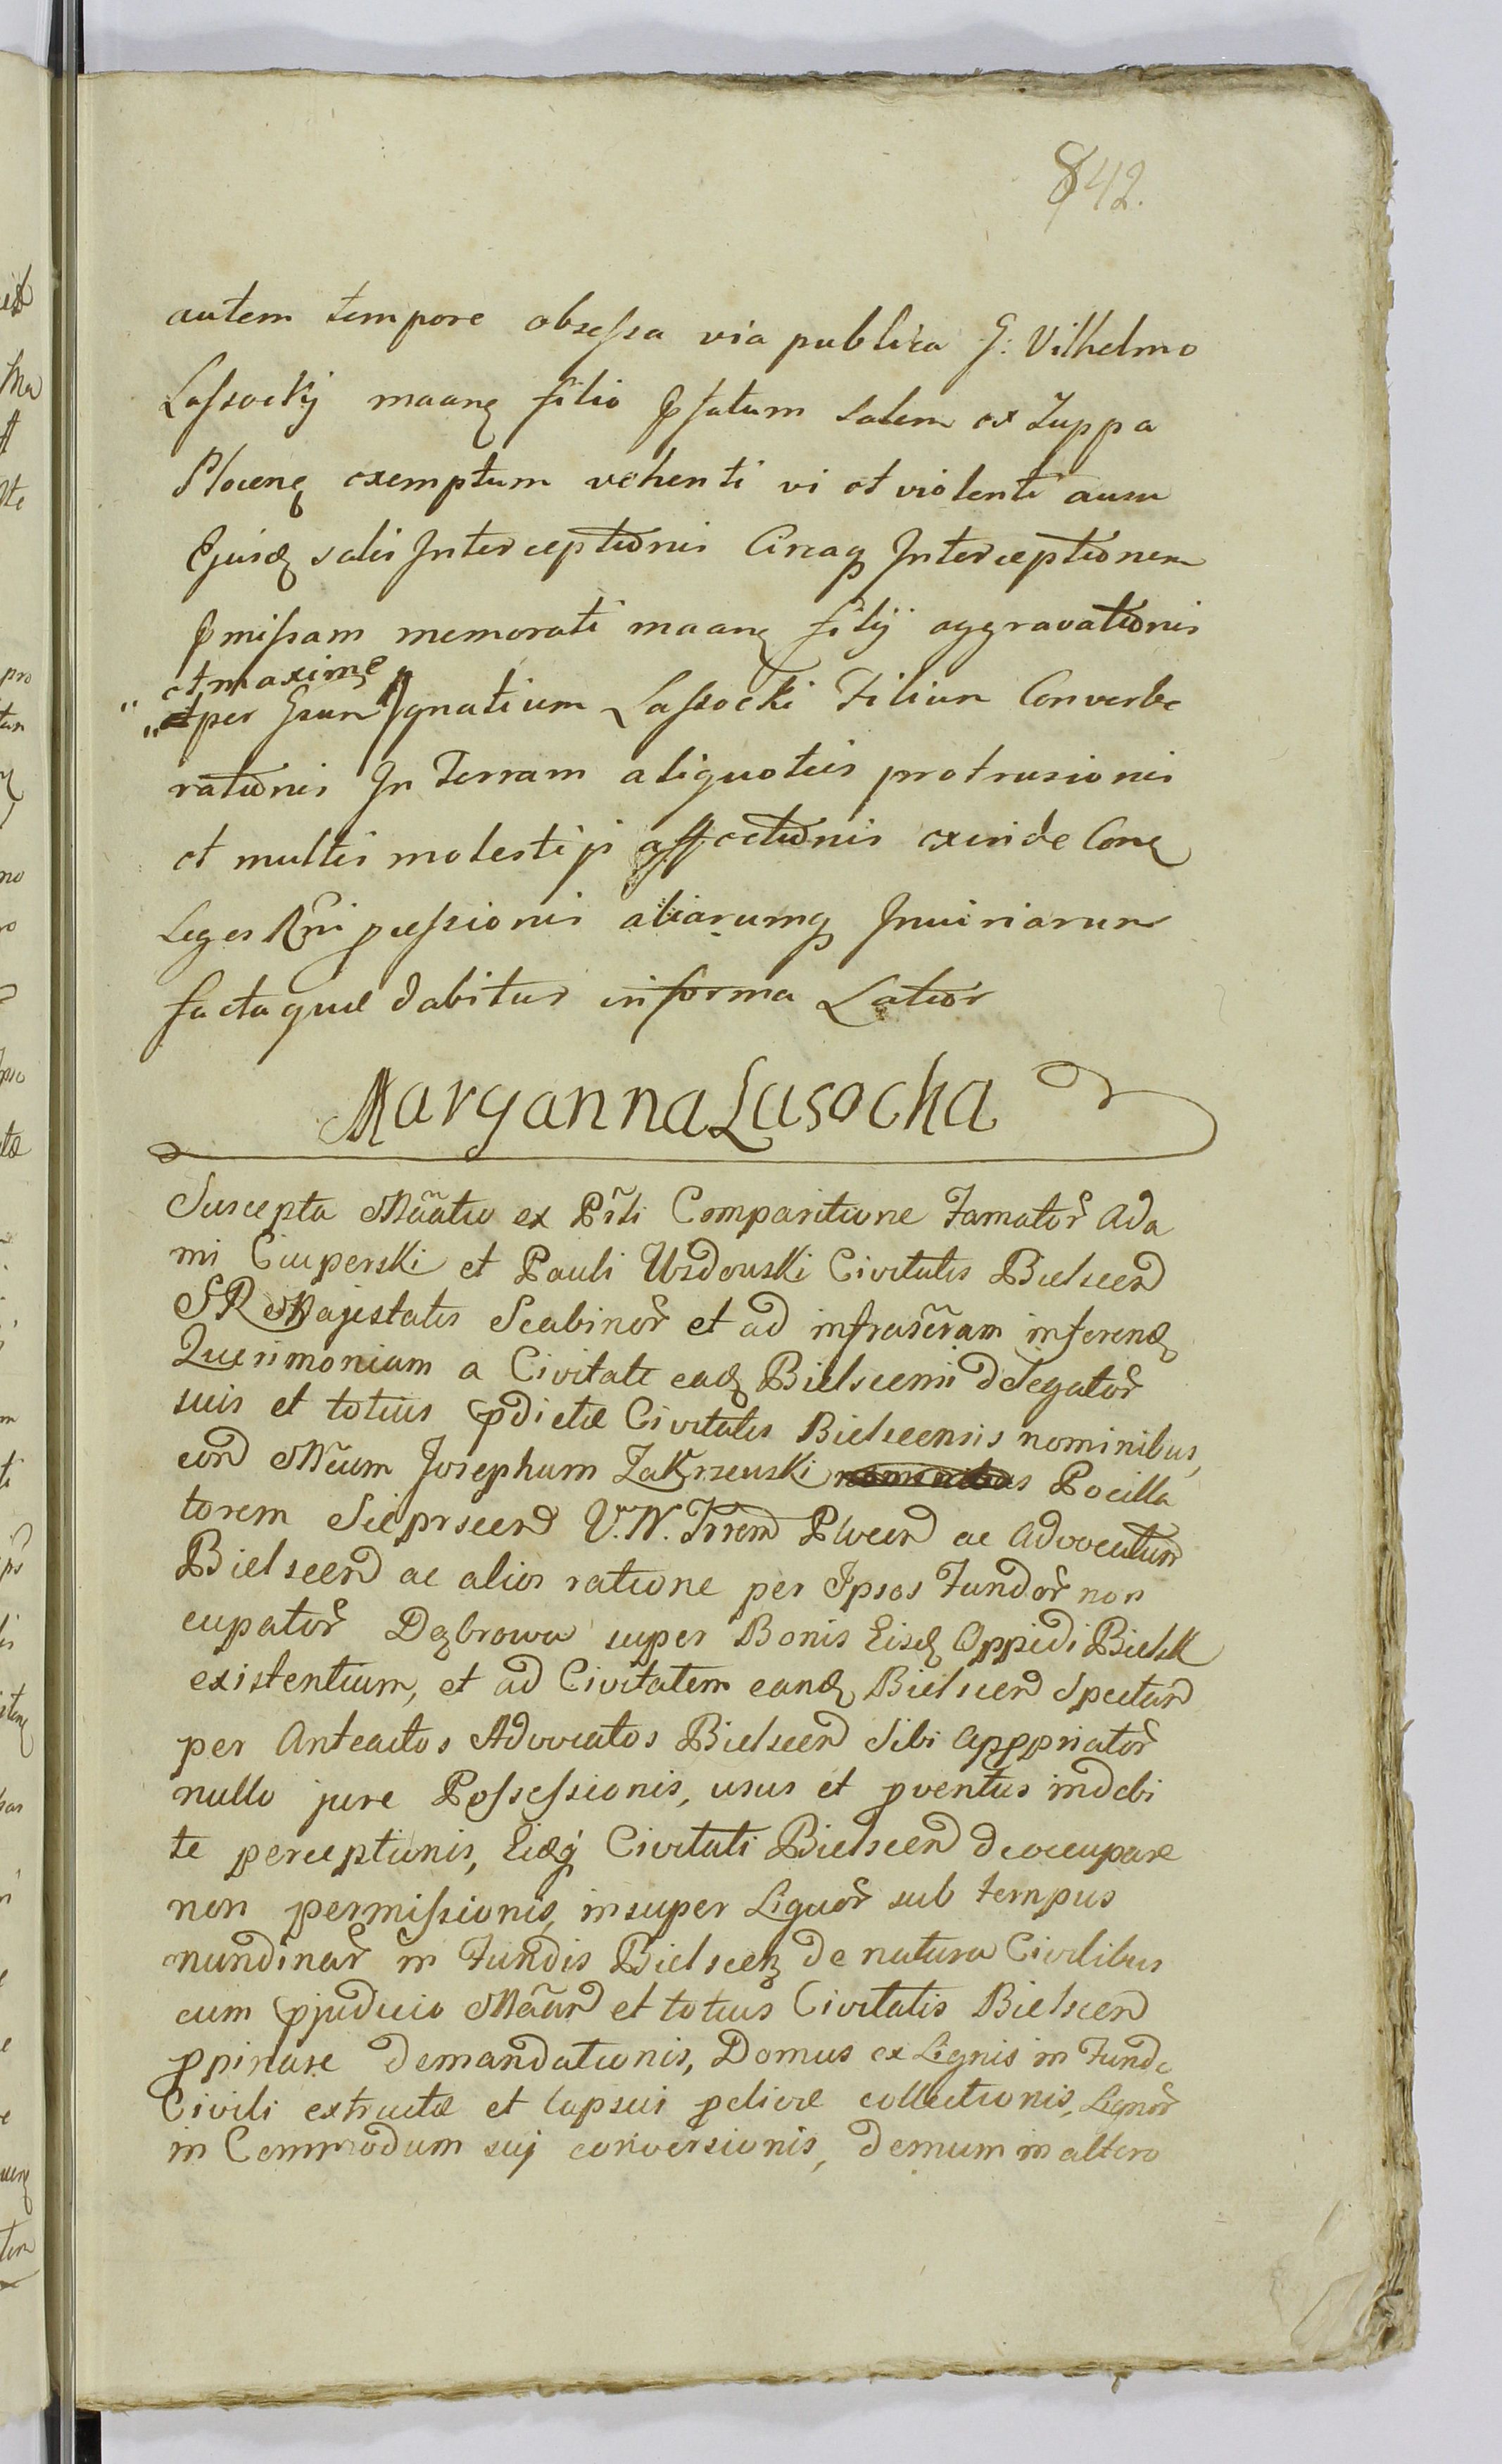 842.
autem tempore obsessa via publica G: Vilhelmo
Lassockij maanę filio Pfatum Salem ex Zuppa
Plocenę exemptum vehenti vi et violenti ausu
Ejusdę salis Interceptionis Circaqę Interceptionem
Pmissam memorati maanę filij aggravationis
et maxime
per Gsum Ignatium Lassocki Filium Converbe
rationis In Terram aliquoties protrusionis
et multis molestijs affectionis exinde Conę
Leges Rni pcessionis aliarumqę Iniuriarum
factaquæ dabitur in forma Latior
Maryanna Lasocka
Suscepta Mãatio ex Pñti Comparitione Famator Ada
mi Ciuperski et Pauli Uzdowski Civitatis Bielscen
S R Majestatis Scabinor et ad infrascram inferendę
Querimoniam a Civitate eadę Bielscensi delegator
suis et totius pdictæ Civitatis Bielscensis nominibus,
con Mcum Josephum Zakrzewski Pocilla
torem Sieprscen V. N. Trren Plocen ac Advocatum
Bielscen ac alios ratione per Ipsos Fundor non
cupator Dąbrowa super Bonis Eisdę Oppidi Bielsk
existentium, et ad Civitatem eandę Bielscen Spectan
per Anteactos Advocatos Bielscen Sibi Appropriator
nullo jure Possessionis, usus et pventus indebi
te perceptionis, Eidęq Civitati Bielscen deoccupare
non permissionis, insuper Liquor sub tempus
nundinar in Fundis Bielscenę de natura Civilibus
cum pjudicio Mãan et totius Civitatis Bielscen
ppinare demandationis, Domus ex Lignis in Fundo
Civili extructæ et lapsui pclivæ collectionis, Lignor
in Commodum suj conversionis, demum in altero